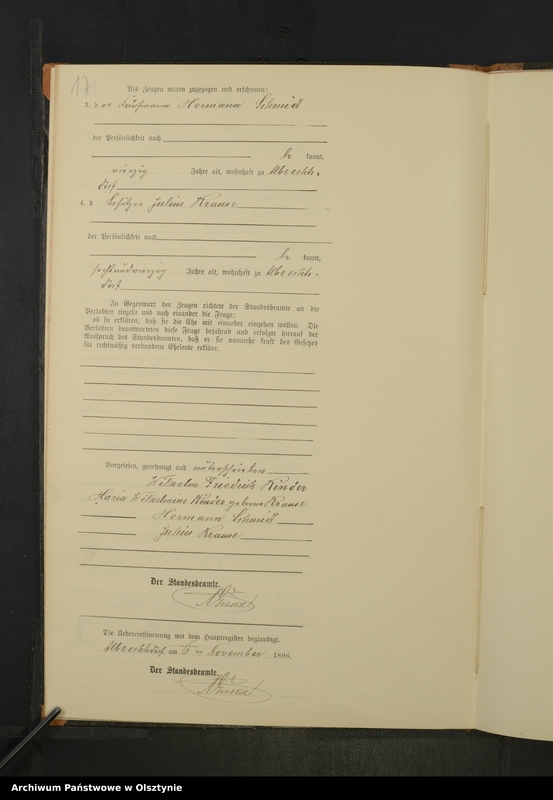 17
Als Zeugen waren zugezogen und erschienen:
3. der Kaufmann Hermann Schmidt
der Persönlichkeit nach
be kannt,
vierzig Jahre alt, wohnhaft zu Albrechts-
dorf
4. d Besitzer Julius Krause
der Persönlichkeit nach
be kannt,
sechsundvierzig Jahre alt, wohnhaft zu Albrechts-
dorf
In Gegenwart der Zeugen richtete der Standesbeamte an die
Verlobten einzeln und nach einander die Frage:
ob sie erklären, daß sie die Ehe mit einander eingehen wollen. Die
Verlobten beantworteten diese Frage bejahend und erfolgte hierauf der
Ausspruch des Standesbeamten, daß er sie nunmehr kraft des Gesetzes
für rechtmäßig verbundene Eheleute erkläre.
Vorgelesen, genehmigt und unterschrieben
Wilhelm Friedrich Kinder
Maria Wilhelmine Kinder geborene Krause
Hermann Schmidt
Julius Krause
Der Standesbeamte.
Die Uebereinstimmung mit dem Hauptregister beglaubigt.
Albrechtsdorf, am 6 ten November 1896.
Der Standesbeamte.
Archiwum Państwowe w Olsztynie